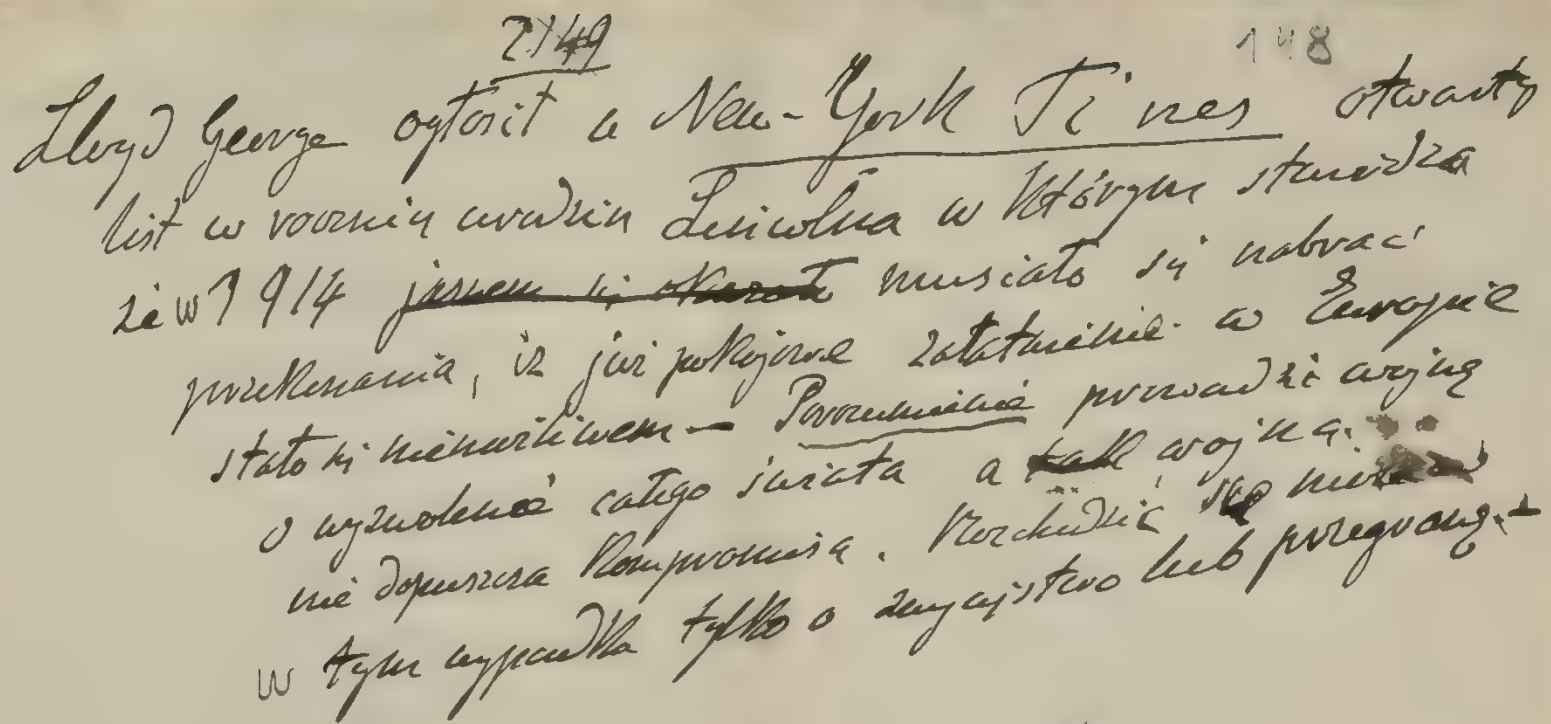 2149
148
Lloyd George ogłosił w New-York Times otwarty
list w rocznicę urodzin Lincolna w którym stwierdza
że w 1914 jasnem się okazało musiało się nabrać
przekonania, iż już pokojowe załatwienie w Europie
stało się niemożliwem — Porozumienie prowadzi wojnę
o wyzwolenie całego świata a taka wojna
nie dopuszcza kompromisu. Rozchodzić się może
w tym wypadku tylko o zwycięstwo lub przegraną. —